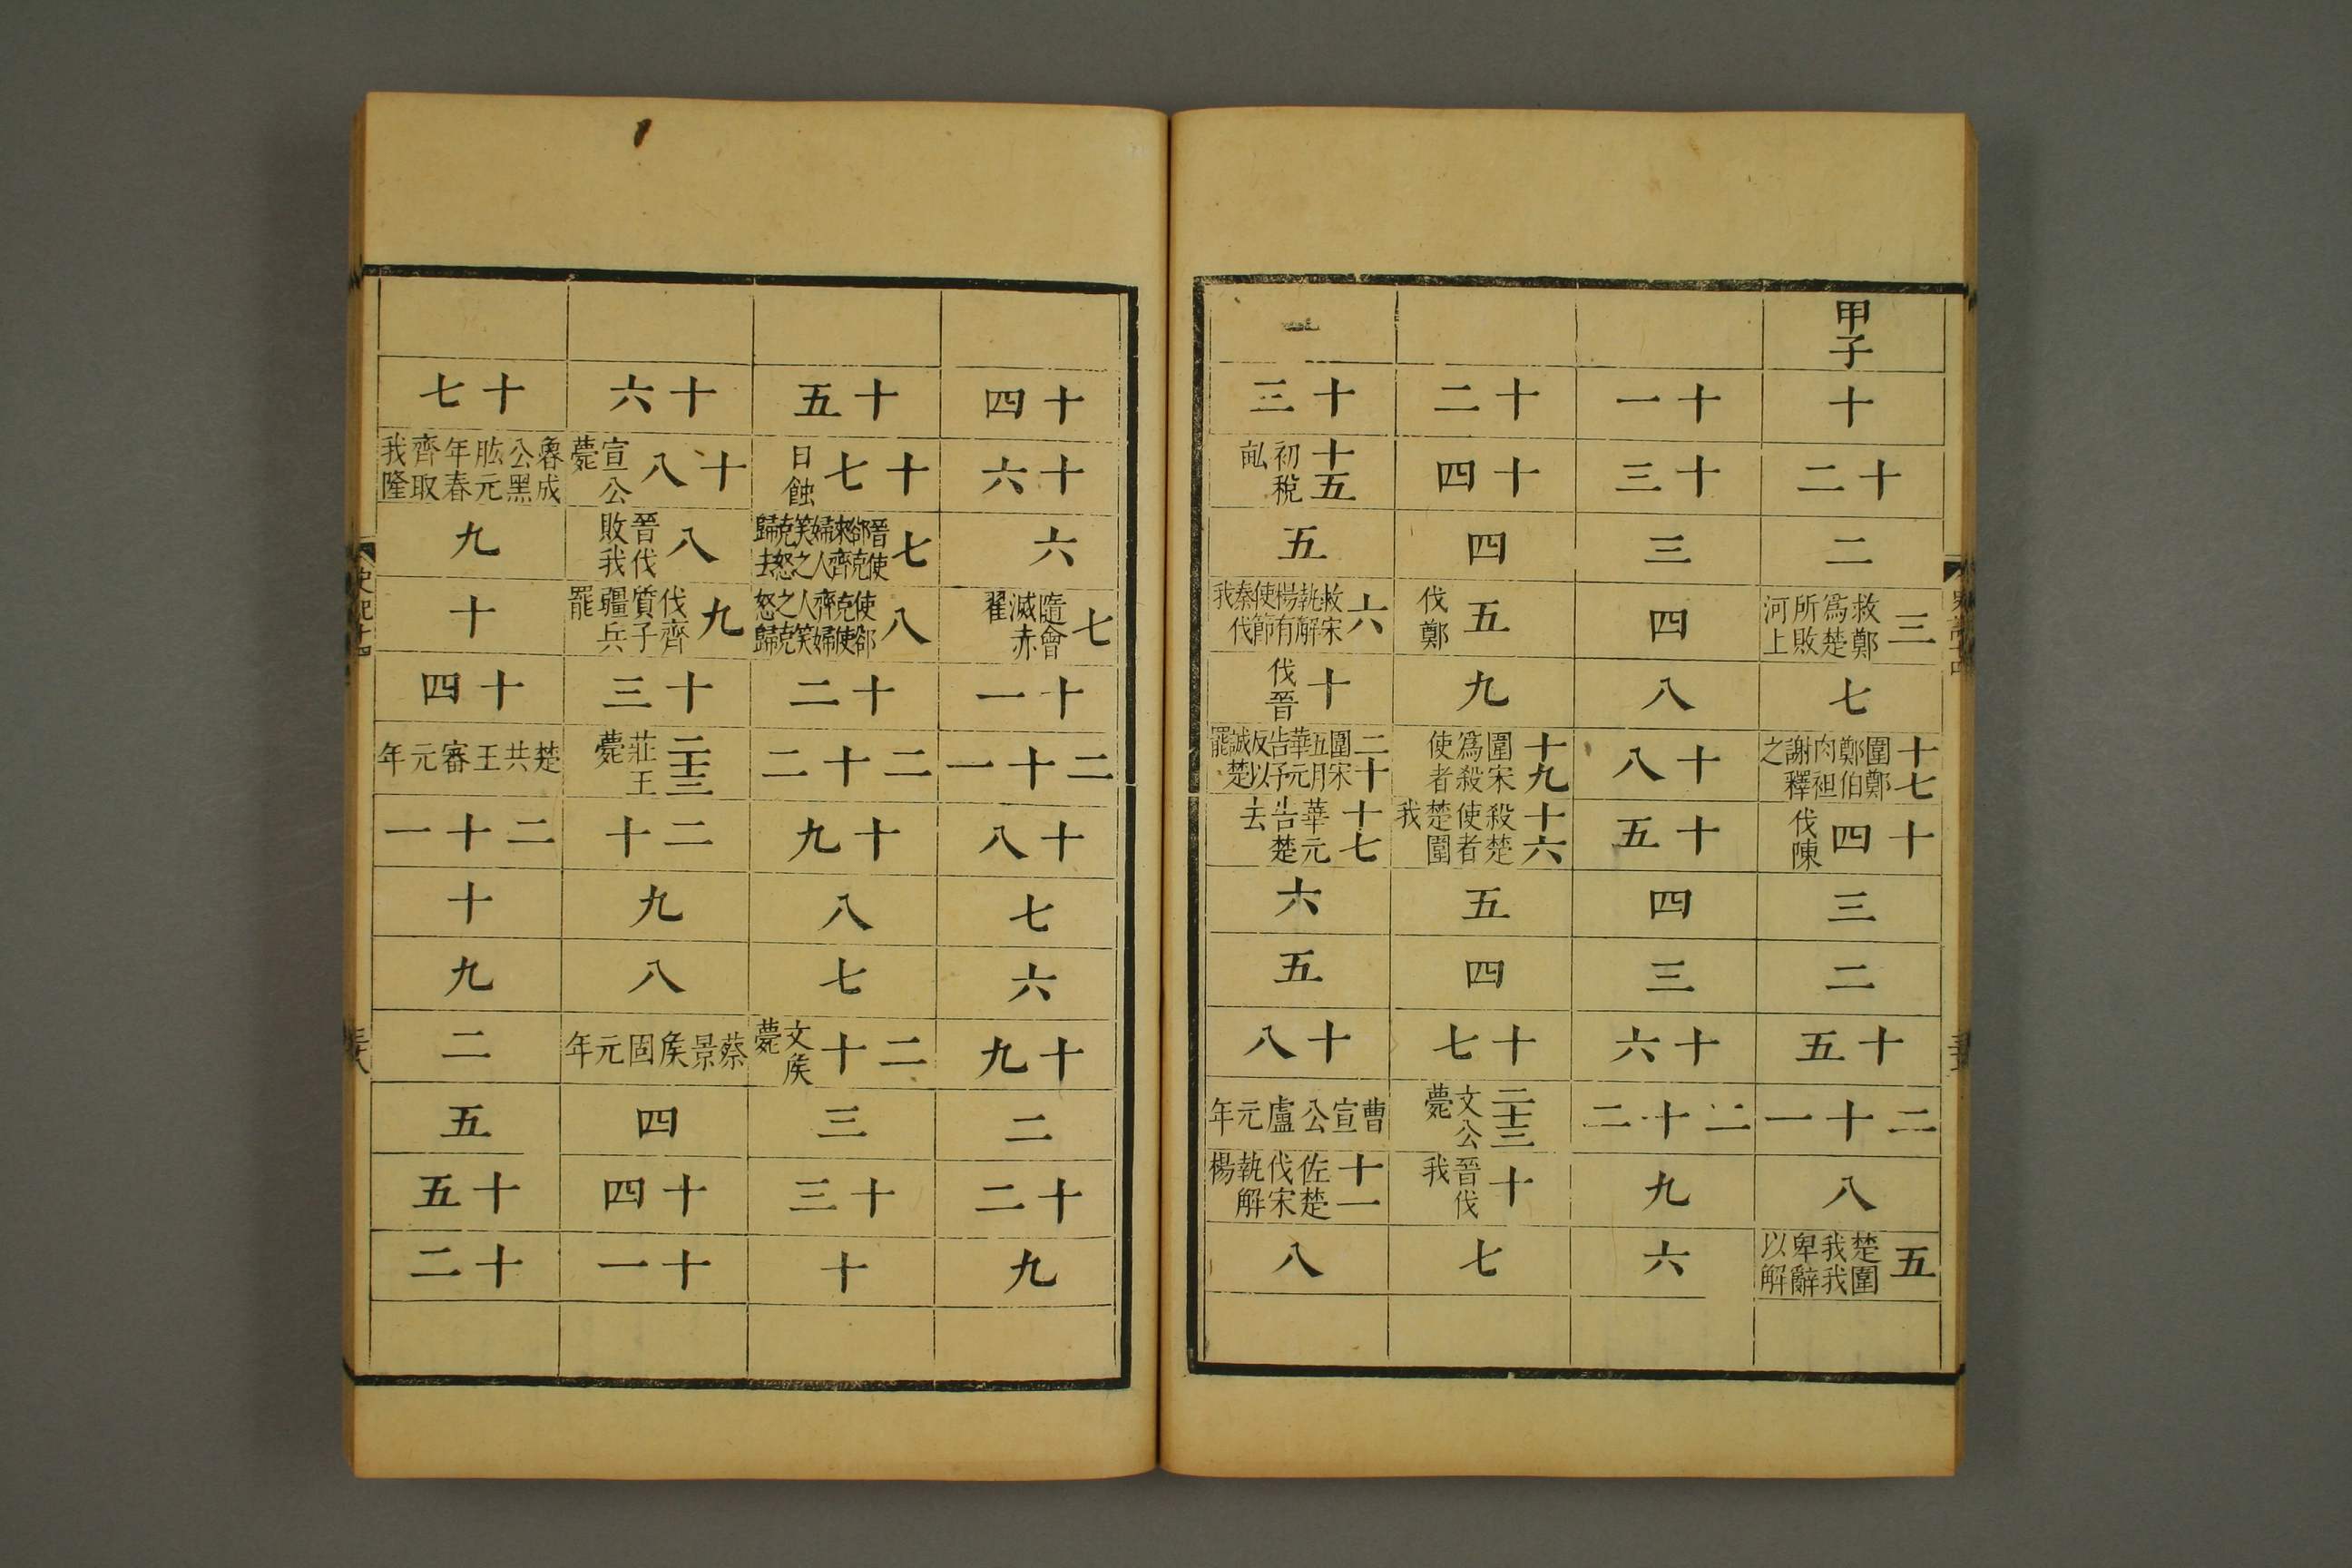 甲子
十
十二
二
三 救鄭爲楚所敗河上
七
十七 圍鄭鄭伯肉袒謝釋之
十四 伐陳
三
二
十五
二十一
八
五 楚圍我我卑辭以解
十一
十三
三
四
八
十八
十五
四
三
十六
二十二
九
六
十二
十四
四
五 伐鄭
九
十九 圍宋爲殺使者
十六 殺楚使者楚圍我
五
四
十七
二十三 文公薨
十 晉伐我
七
十三
十五 初稅畝
五
六 救宋執解楊有使節秦伐我
十 伐晉
二十 圍宋五月華元告子反以誠楚罷
十七 華元告楚去
六
五
十八
曹宣公盧元年
十一 佐楚伐宋執解楊
八
十四
十六
六
七 隨會滅赤翟
十一
二十一
十八
七
六
十九
二
十二
九
十五
十七 日蝕
七 晉使郤克來齊婦人笑之克怒歸去
八 使郤克使齊婦人笑之克怒歸
十二
二十二
十九
八
七
二十 文矦薨
三
十三
十
十六
十八 宣公薨
八 晉伐敗我
九 伐齊質子彊兵罷
十三
二十三 莊王薨
二十
九
八
蔡景矦固元年
四
十四
十一
十七
魯成公黑肱元年春齊取我隆
九
十
十四
楚共王審元年
二十一
十
九
二
五
十五
十二
史記十四